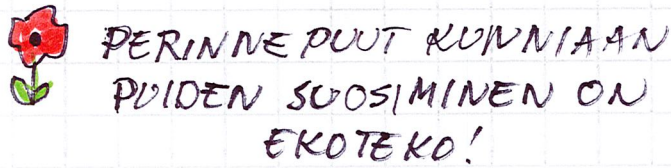 PERINNEPUUT KUNNIAAN
PUIDEN SUOSIMINEN ON
EKOTEKO!